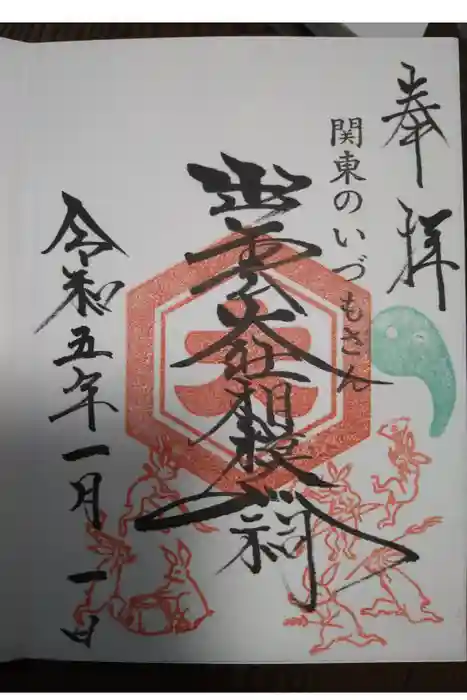 奉拝
関東のいづもさん
出雲大社相模分祠
大
令和五年一月一日